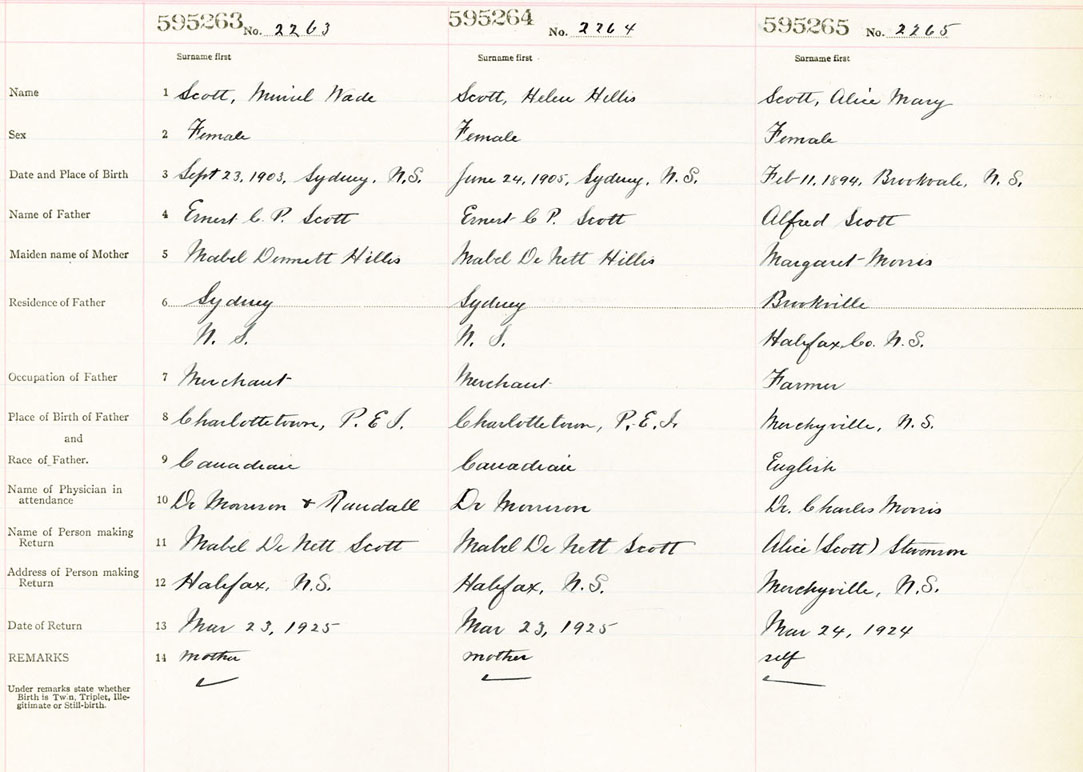 595263 No. 2263 595264 No. 2264 595265 No. 2265
Surname first Surname first Surname first
Name 1 Scott, Muriel Wade Scott, Helen Hillis Scott, Alice Mary
Sex 2 Female Female Female
Date and Place of Birth 3 Sept 23, 1903, Sydney, N.S. June 24, 1905, Sydney, N.S. Feb 11, 1894, Brookvale, N.S.
Name of Father 4 Ernest C. P. Scott Ernest C P. Scott Alfred Scott
Maiden name of Mother 5 Mabel Dennett Hillis Mabel De Nett Hillis Margaret Morris
Residence of Father 6 Sydney Sydney Brookville
N. S. N. S. Halifax Co. N.S.
Occupation of Father 7 Merchant Merchant Farmer
Place of Birth of Father 8 Charlottetown, P.E.I. Charlottetown, P.E.I. N.S.
and
Race of Father. 9 Canadian Canadian English
Name of Physician in
attendance 10 Dr Morrison & Randall Dr Morrison Dr. Charles Morris
Name of Person making
Return 11 Mabel De Nett Scott Mabel De Nett Scott Alice (Scott) Stevenson
Address of Person making
Return 12 Halifax, N.S. Halifax, N.S. N.S.
Date of Return 13 Mar 23, 1925 Mar 23, 1925 Mar 24, 1924
REMARKS 14 mother mother self
Under remarks state whether
Birth is Twin, Triplet, Ille-
gitimate or Still-birth.